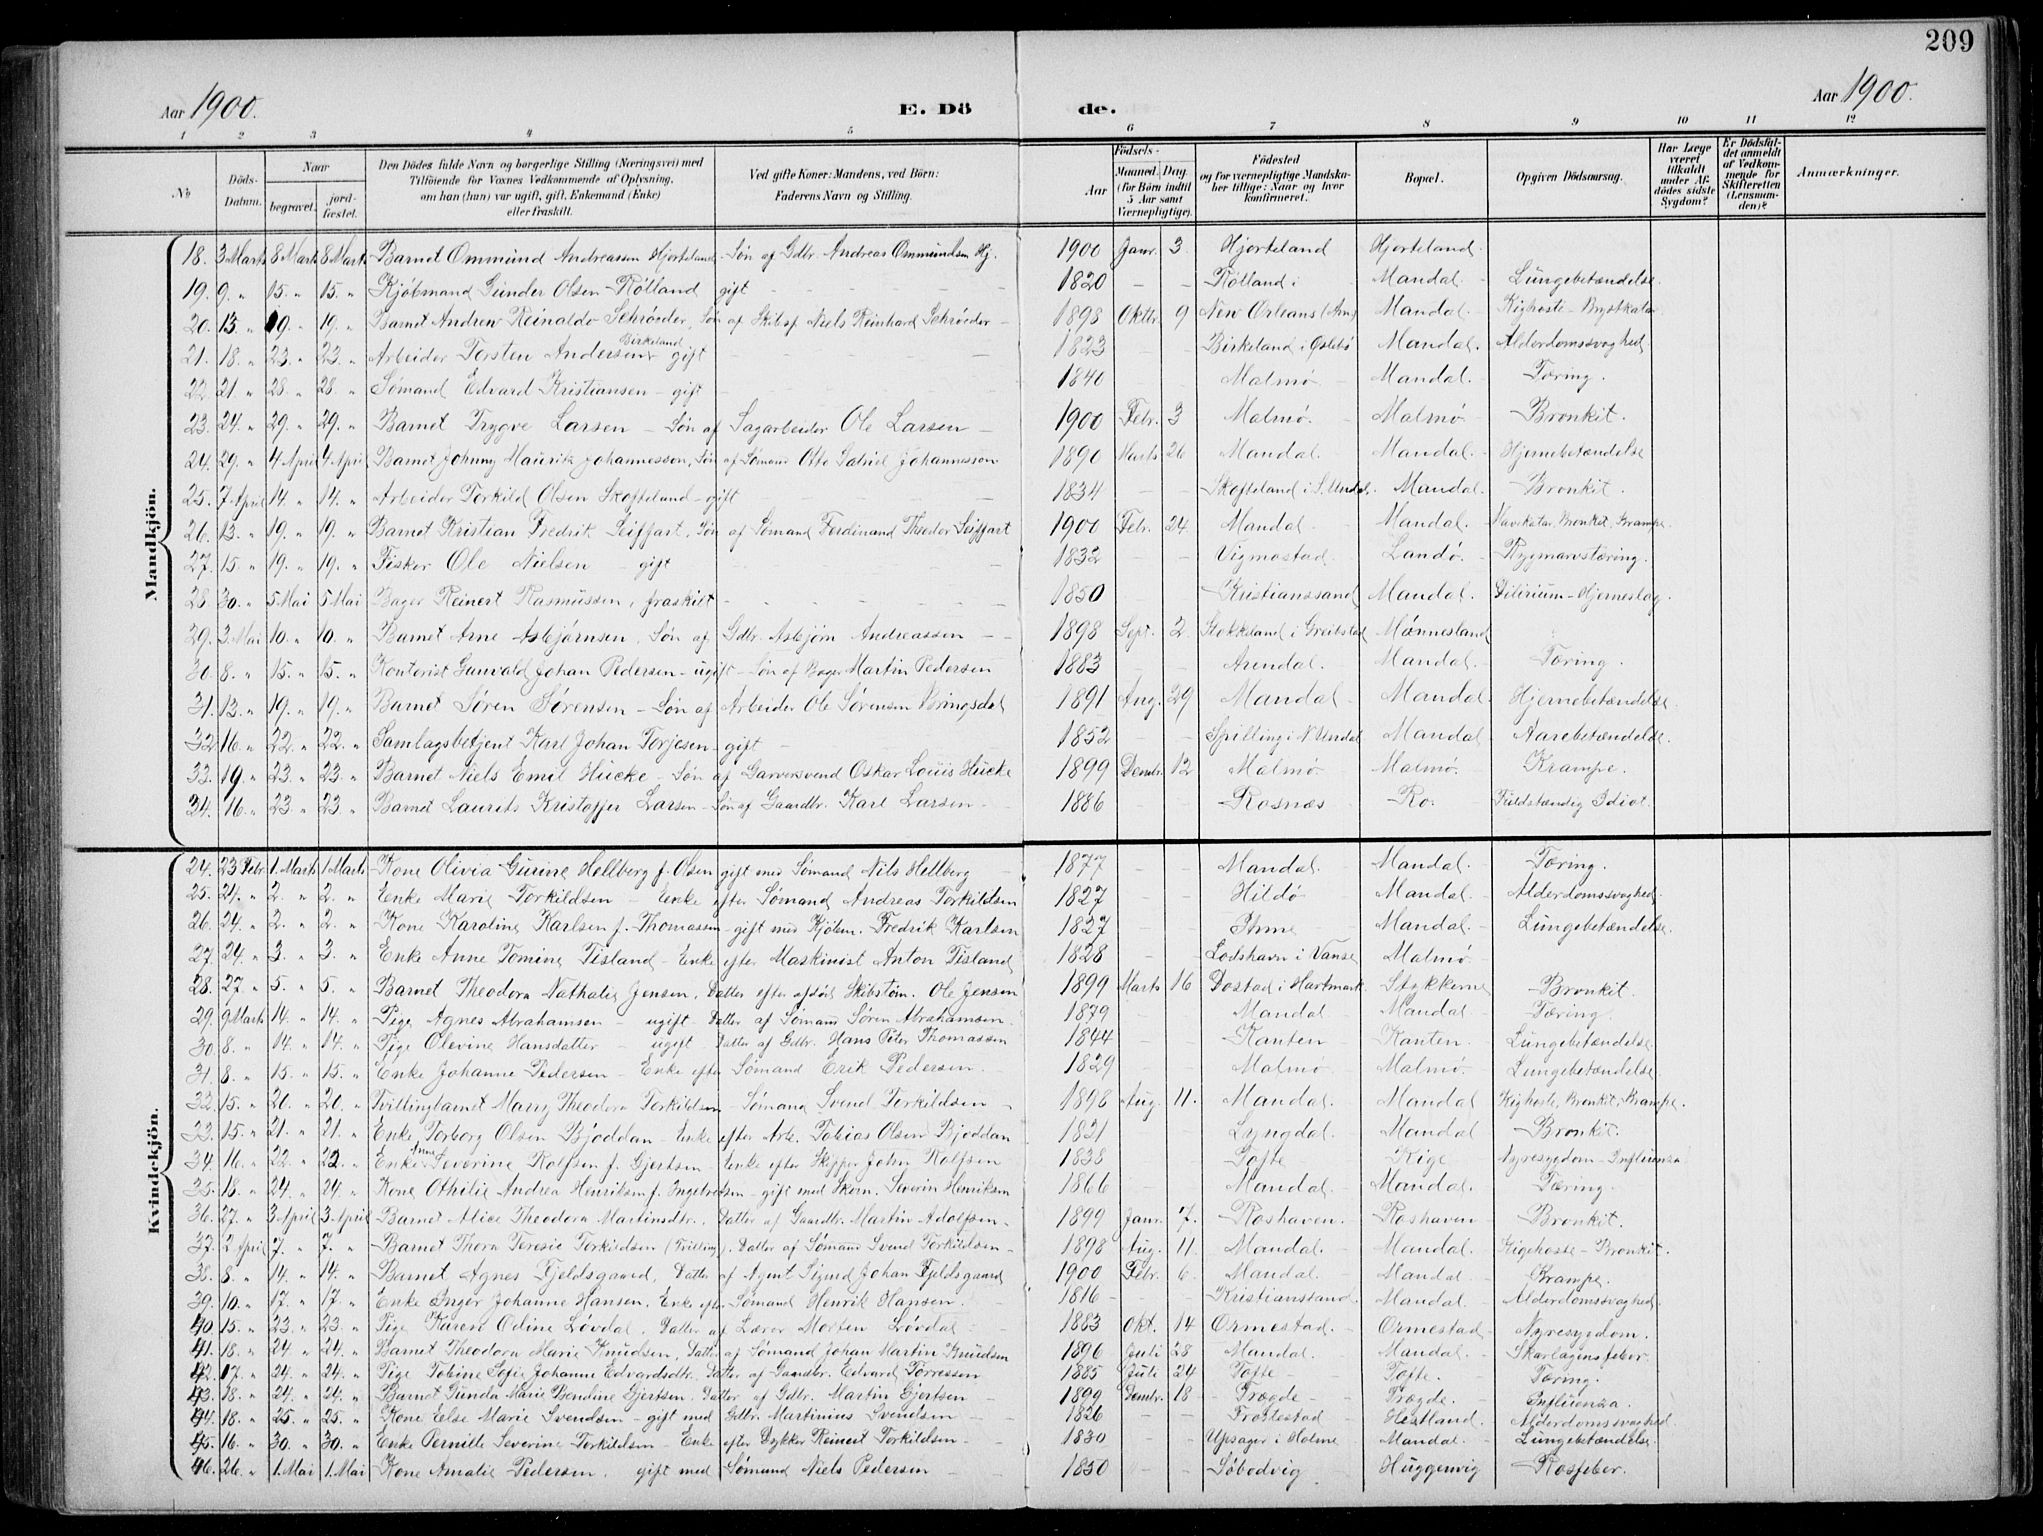 209
Aar 1900. E. Dö de. Aar 1900.
1 2 3 4 5 6 7 8 9 10 11 12
№ Döds-Datum. Naar begravet. jord-fæstet. Den Dödes fulde Navn og borgerlige Stilling (Næringsvei) med Tilföiende for Voxnes Vedkommende af Oplysning, om han (hun) var ugift, gift, Enkemand (Enke) eller fraskilt. Ved gifte Koner: Mandens, ved Börn: Faderens Navn og Stilling. Födsels- Aar Maaned. Dag. (for Börn indtil 5 Aar samt Værnepligtige). Födested og for værnepligtige Mandska-ber tillige: Naar og hvor konfirmeret. Bopæl. Opgiven Dödsaarsag. Har Læge været tilkaldt under Af-dödes sidste Sygdom? Er Dödsfal-det anmeldt af Vedkom-mende for Skifteretten (Lensman-den)? Anmærkninger.
Mandkjön.
18. 3 Marts 8 Marts 8 Marts Barnet Ommund Andreassen Hjorteland Søn af Gdbr. Andreas Ommundsen Hj. 1900 Janr. 3 Hjorteland Hjorteland
19. 9. " 15. " 15. " Kjøbmand Gunder Olsen Røtland gift 1820 Røtland i Mandal Lungebetændelse
20. 13 " 19. " 19. " Barnet Andrew Reinaldo Schrøder, Søn af Skibsf. Niels Reinhard Schrøder 1898 Oktbr. 9 New Orleans (Am) Mandal Kighoste - Brystkatar
21. 18. " 23. " 23. " Arbeider Torsten Andersen Birkeland gift 1823 Birkeland i Øslebø Mandal. Alderdomssvaghed
22. 21 " 28 " 28 " Sømand Edvard Kristiansen - gift 1840 Malmø Mandal. Tæring.
23. 24. " 29. " 29. " Barnet Trygve Larsen - Søn af Sagarbeider Ole Larsen 1900 Febr. 3 Malmø. Malmø. Bronkit.
24. 29. " 4 April 4 April Barnet Johnny Mauritz Johannesson, Søn af Sømand Otto Gabriel Johannesson 1890 Marts 26 Mandal. Mandal. Hjernebetændelse
25. 7 April 14. " 14. " Arbeider Torkild Olsen Skofteland - gift 1834 Skofteland i S. Undal. Mandal. Bronkit.
26. 13. " 19. " 19. " Barnet Kristian Fredrik Seiffart, Søn af Sømand Ferdinand Theodor Seiffart 1900 Febr. 24 Mandal Mandal. Mavekatar, Bronkit, Krampe.
27. 15. " 19. " 19. " Fisker Ole Nielsen - gift 1832 Vigmostad. Landø. Rygmarvstæring.
28. 30. " 5 Mai 5 Mai Bager Reinert Rasmussen, fraskilt 1850 Kristianssand Mandal. Dilirium - Hjerneslag.
29. 3 Mai 10. " 10. " Barnet Arne Asbjørnsen, Søn af Gdbr. Asbjørn Andreassen 1898 Sept. 2. Stokkeland i Greipstad Mønnesland
30. 8. " 15. " 15. " Kontorist Gunvald Johan Pedersen - ugift - Søn af Bager Martin Pedersen 1883 Arendal. Mandal. Tæring.
31. 13. " 19. " 19. " Barnet Søren Sørensen - Søn af Arbeider Ole Sørensen Bringsdal 1891 Aug. 29 Mandal Mandal. Hjernebetændelse.
32. 16. " 22. " 22. " Samlagsbetjent Karl Johan Torjesen - gift 1852 Spilling i N. Undal Mandal Aarebetændelse.
33. 19. " 23. " 23. " Barnet Niels Emil Hucke - Søn af Garversvend Oskar Louis Hucke 1899 Decbr. 12 Malmø Malmø. Krampe.
34. 16. " 23. " 23. " Barnet Laurits Kristoffer Larsen - Søn af Gaardbr. Karl Larsen 1886 Rosnæs Ro. Fuldstændig Idiot.
Kvindekjön.
24. 23 Febr. 1. Marts 1 Marts Kone Olivia Gurine Hellberg f. Olsen gift med Sømand Nils Hellberg 1877 Mandal. Mandal. Tæring.
25. 24. " 2. " 2. " Enke Marie Torkildsen - Enke efter Sømand Andreas Torkildsen 1827 Hildø Mandal. Alderdomssvaghed
26. 24. " 2. " 2. " Kone Karoline Karlsen f. Thomassen - gift med Kjøbm. Fredrik Karlsen 1827 Ihme Mandal. Lungebetændelse.
27. 24. " 3. " 3. " Enke Anne Tomine Fisland - Enke efter Maskinist Anton Fisland 1828 Lodshavn i Vanse Malmø.
28. 27. " 5. " 5. " Barnet Theodora Nathalie Jensen. Datter efter afdød Skibstøm. Ole Jensen 1899 Marts 16 Dostad i Hartmark. Stykkerne Bronkit.
29. 9 Marts 14. " 14. " Pige Agnes Abrahamsen - ugift - Datter af Sømand Søren Abrahamsen. 1879 Mandal. Mandal. Tæring.
30. 8. " 14. " 14. " Pige Olevine Hansdatter - ugift - Datter af Gdbr. Hans Peter Thomassen 1844 Kanten Kanten. Lungebetændelse.
31. 8. " 15. " 15. " Enke Johanne Pedersen - Enke efter Sømand Erik Pedersen. 1829 Malmø Malmø. Lungebetændelse
32. 15. " 20. " 20. " Tvillingbarnet Marry Theodora Torkildsen - Sømand Svend Torkildsen 1898 Aug. 11. Mandal. Mandal Kighoste, Bronkit, Krampe.
33. 15. " 21. " 21. " Enke Torborg Olsen Bjoddan - Enke efter Arb. Tobias Olsen Bjoddan 1821 Lyngdal. Mandal Bronkit.
34. 16. " 22 " 22. " Enke Severine Rolfsen f. Gjertsen - Enke efter Skipper John Rolfsen 1838 Tofte Kige Nyresygdom - Influenza
35. 18. " 24. " 24. " Kone Othilie Andrea Henriksen f. Ingebretsen - gift med Skom. Severin Henriksen 1866 Mandal. Mandal. Tæring.
36. 27. " 3 April 3 April Barnet Alice Theodora Martinsdtr. Datter af Gaardbr. Martin Adolfsen 1899 Janr. 7. Roshaven. Roshaven Bronkit.
37. 2 April 7. " 7. " Barnet Thora Teresie Torkildsen (Tvilling). Datter af Sømand Svend Torkildsen 1898 Aug. 11. Mandal. Mandal. Kigehoste - Bronkit.
38. 8. " 14. " 14. " Barnet Agnes Fjeldsgaard, Datter af Agent Sigurd Johan Fjeldsgaard 1900 Febr. 6. Mandal. Mandal. Krampe.
39. 10. " 17. " 17. " Enke Inger Johanne Hansen. Enke efter Sømand Henrik Hansen. 1816 Kristianssand. Mandal. Alderdomssvaghed.
40. 15. " 23. " 23. " Pige Karen Odine Løvdal. Datter af Lærer Morten Løvdal 1883 Okt. 14 Ormestad. Ormestad Nyresygdom.
41. 18. " 24. " 24. " Barnet Theodora Marie Knudsen, Datter af Sømand Johan Martin Knudsen 1896 Juli 28 Mandal. Mandal. Skarlagensfeber.
42. 17 " 24. " 24. " Pige Tobine Sofie Johanne Edvardsdtr. Datter af Gaardbr. Edvard Torressen 1885 Juli 24 Tofte Tofte. Tæring.
43. 18. " 24. " 24. " Barnet Gunda Marie Bendine Gjertsen, Datter af Gdbr. Martin Gjertsen 1899 Decbr. 18 Trægde Trægde. Influenza.
44. 18. " 25. " 25. " Kone Else Marie Svendsen - gift med Gdbr. Martinius Svendsen 1826 Frøitestad Hestland. Alderdomssvaghed
45. 16. " 30. " 30. " Enke Pernille Severine Torkildsen - Enke efter Dykker Reinert Torkildsen 1830 Upsager i Holme Mandal. Lungebetændelse.
46. 26. " 1. Mai 1. Mai Kone Amalie Pedersen, gift med Sømand Niels Pedersen 1850 Søbodvig Huggenvig Rosfeber.